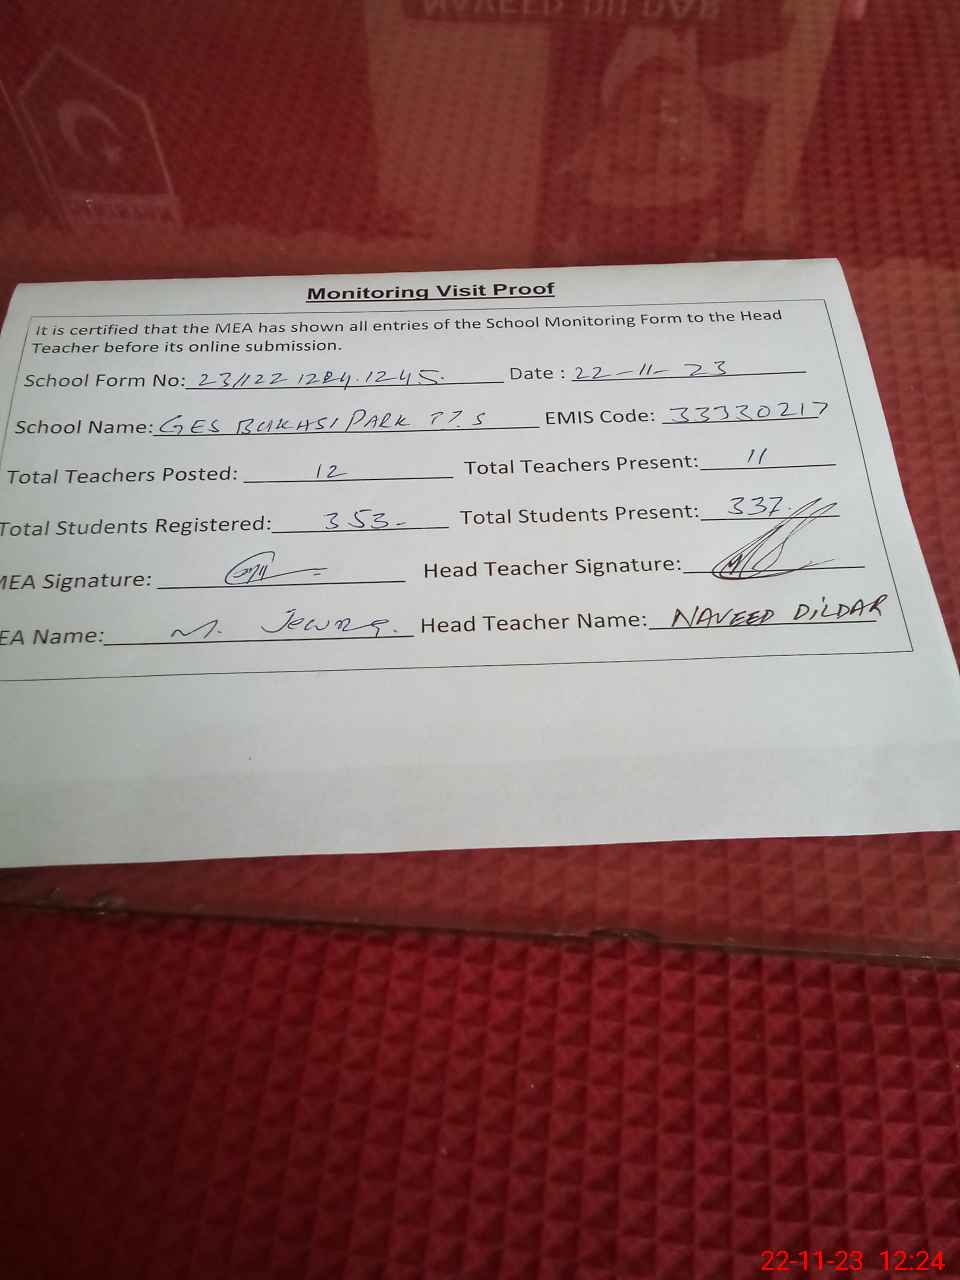 NAVEED DILDAR
Monitoring Visit Proof
It is certified that the MEA has shown all entries of the School Monitoring Form to the Head
Teacher before its online submission.
School Form No: 231122 1284.1245. Date : 22-11-23
School Name: GES BUKHSI PARK TT.S EMIS Code: 33330217
Total Teachers Posted: 12 Total Teachers Present: 11
Total Students Registered: 353- Total Students Present: 337.
MEA Signature: Head Teacher Signature:
EA Name: M. Head Teacher Name: NAVEED DILDAR
22-11-23 12:24